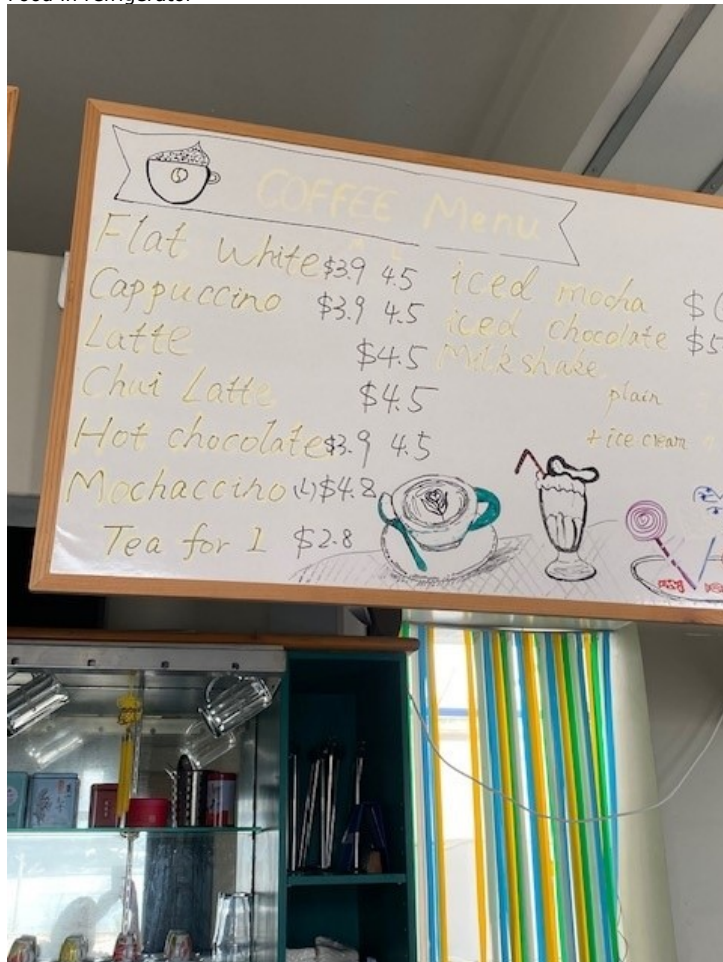 COFFEE Menu
Flat white $3.9 4.5
Cappuccino $3.9 4.5
Latte $4.5
Chui Latte $4.5
Hot chocolate $3.9 4.5
Mochaccino (L) $4.8
Tea for 1 $2.8
iced mocha $
iced chocolate $5
Milkshake
plain
+ ice cream